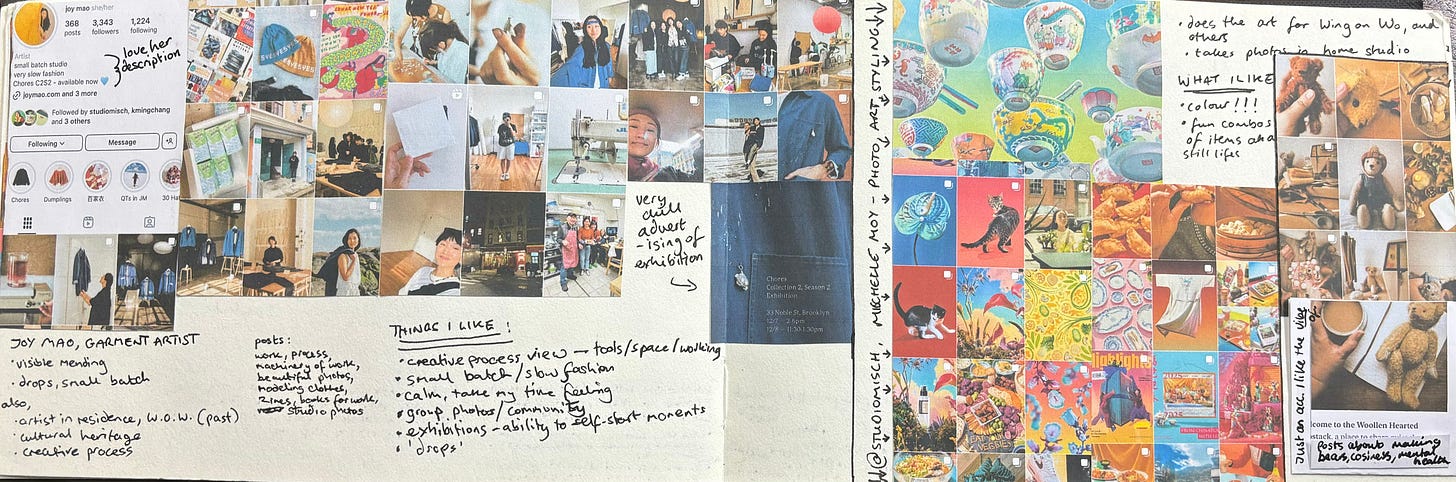 joy mao she/her
368 3,343 1,224
posts followers following
Artist
small batch studio
very slow fashion
Chores C2S2 - available now
joymao.com and 3 more
Followed by studiomisch, kmingchang
and 3 others
Following Message
Chores Dumplings 百家衣 QTs in JM
love her
description
JOY MAO, GARMENT ARTIST
• visible mending
• drops, small batch
also,
• artist in residence, W.O.W. (past)
• cultural heritage
• creative process
posts:
work, process,
machinery of work,
beautiful photos,
modeling clothes,
zines, books for work,
studio photos
THINGS I LIKE!
• creative process view – tools/space/working
• small batch / slow fashion
• calm, take my time feeling
• group photos / community
• exhibitions – ability to self-start moments
• 'drops'
very
chill
advert
-ising of
exhibition
Chores
Collection 2, Season 2
Exhibition
33 Noble St, Brooklyn
12/7 – 2-6pm
12/8 – 11:30-1:30pm
@STUDIOMISCH, MICHELLE MOY - PHOTO, ART STYLING
• does the art for Wing on Wo, and
others
• takes photos in home studio
WHAT I LIKE
• colour!!!
• fun combos
of items aka
still lifes
highlights
2025
Just an acc. I like the vibe of
lcome to the Woollen Hearted
posts about making
bears, cosiness, mental
health